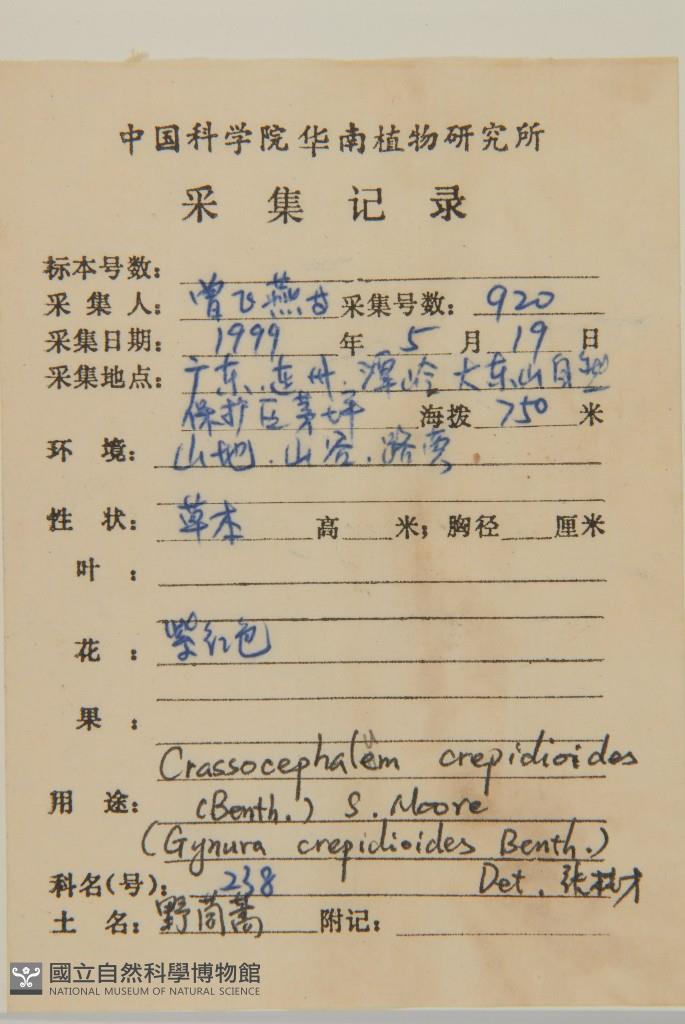 中国科学院华南植物研究所
采集记录
标本号数：
采集人：曾飞燕等 采集号数：920
采集日期：1999年5月19日
采集地点：广东.连州.潭岭大东山自然
保护区茅坪 海拨750米
环境：山地.山谷.路旁
性状：草本 高 米；胸径 厘米
叶：
花：紫红色
果：
Crassocephalum crepidioides
用途：(Benth.) S. Moore
(Gynura crepidioides Benth.)
科名(号)：238 Det. 张桂才
土名：野茼蒿 附记：
國立自然科學博物館
NATIONAL MUSEUM OF NATURAL SCIENCE